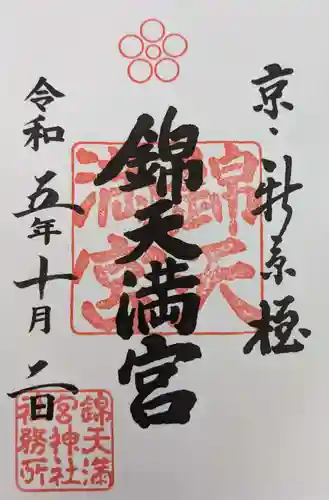 京・新京極
錦天満宮
錦天満宮
令和五年十月二日
錦天満
宮神社
務所